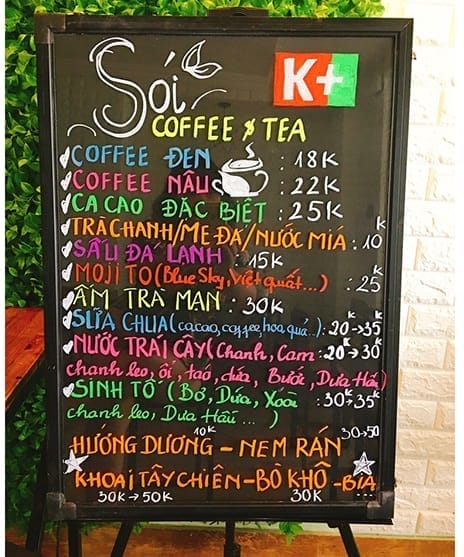 Sói
K+
COFFEE & TEA
COFFEE ĐEN : 18K
COFFEE NÂU : 22K
CA CAO ĐẶC BIỆT : 25K
TRÀ CHANH/MƠ ĐÁ/NƯỚC MÍA : 10K
SẤU ĐÁ LẠNH : 15K
MOJITO (Blue Sky, Việt quất...) : 25K
ẤM TRÀ MẠN : 30K
SỮA CHUA (cacao, coffee, hoa quả..) : 20K→35K
NƯỚC TRÁI CÂY (Chanh, Cam : 20K→30K
chanh leo, ổi, táo, dứa, Bưởi, Dưa Hấu)
SINH TỐ (Bơ, Dứa, Xoài : 30K 35K
chanh leo, Dưa Hấu ... )
HƯỚNG DƯƠNG - NEM RÁN
10K 30→50
KHOAI TÂY CHIÊN - BÒ KHÔ - BIA
30K→50K 30K